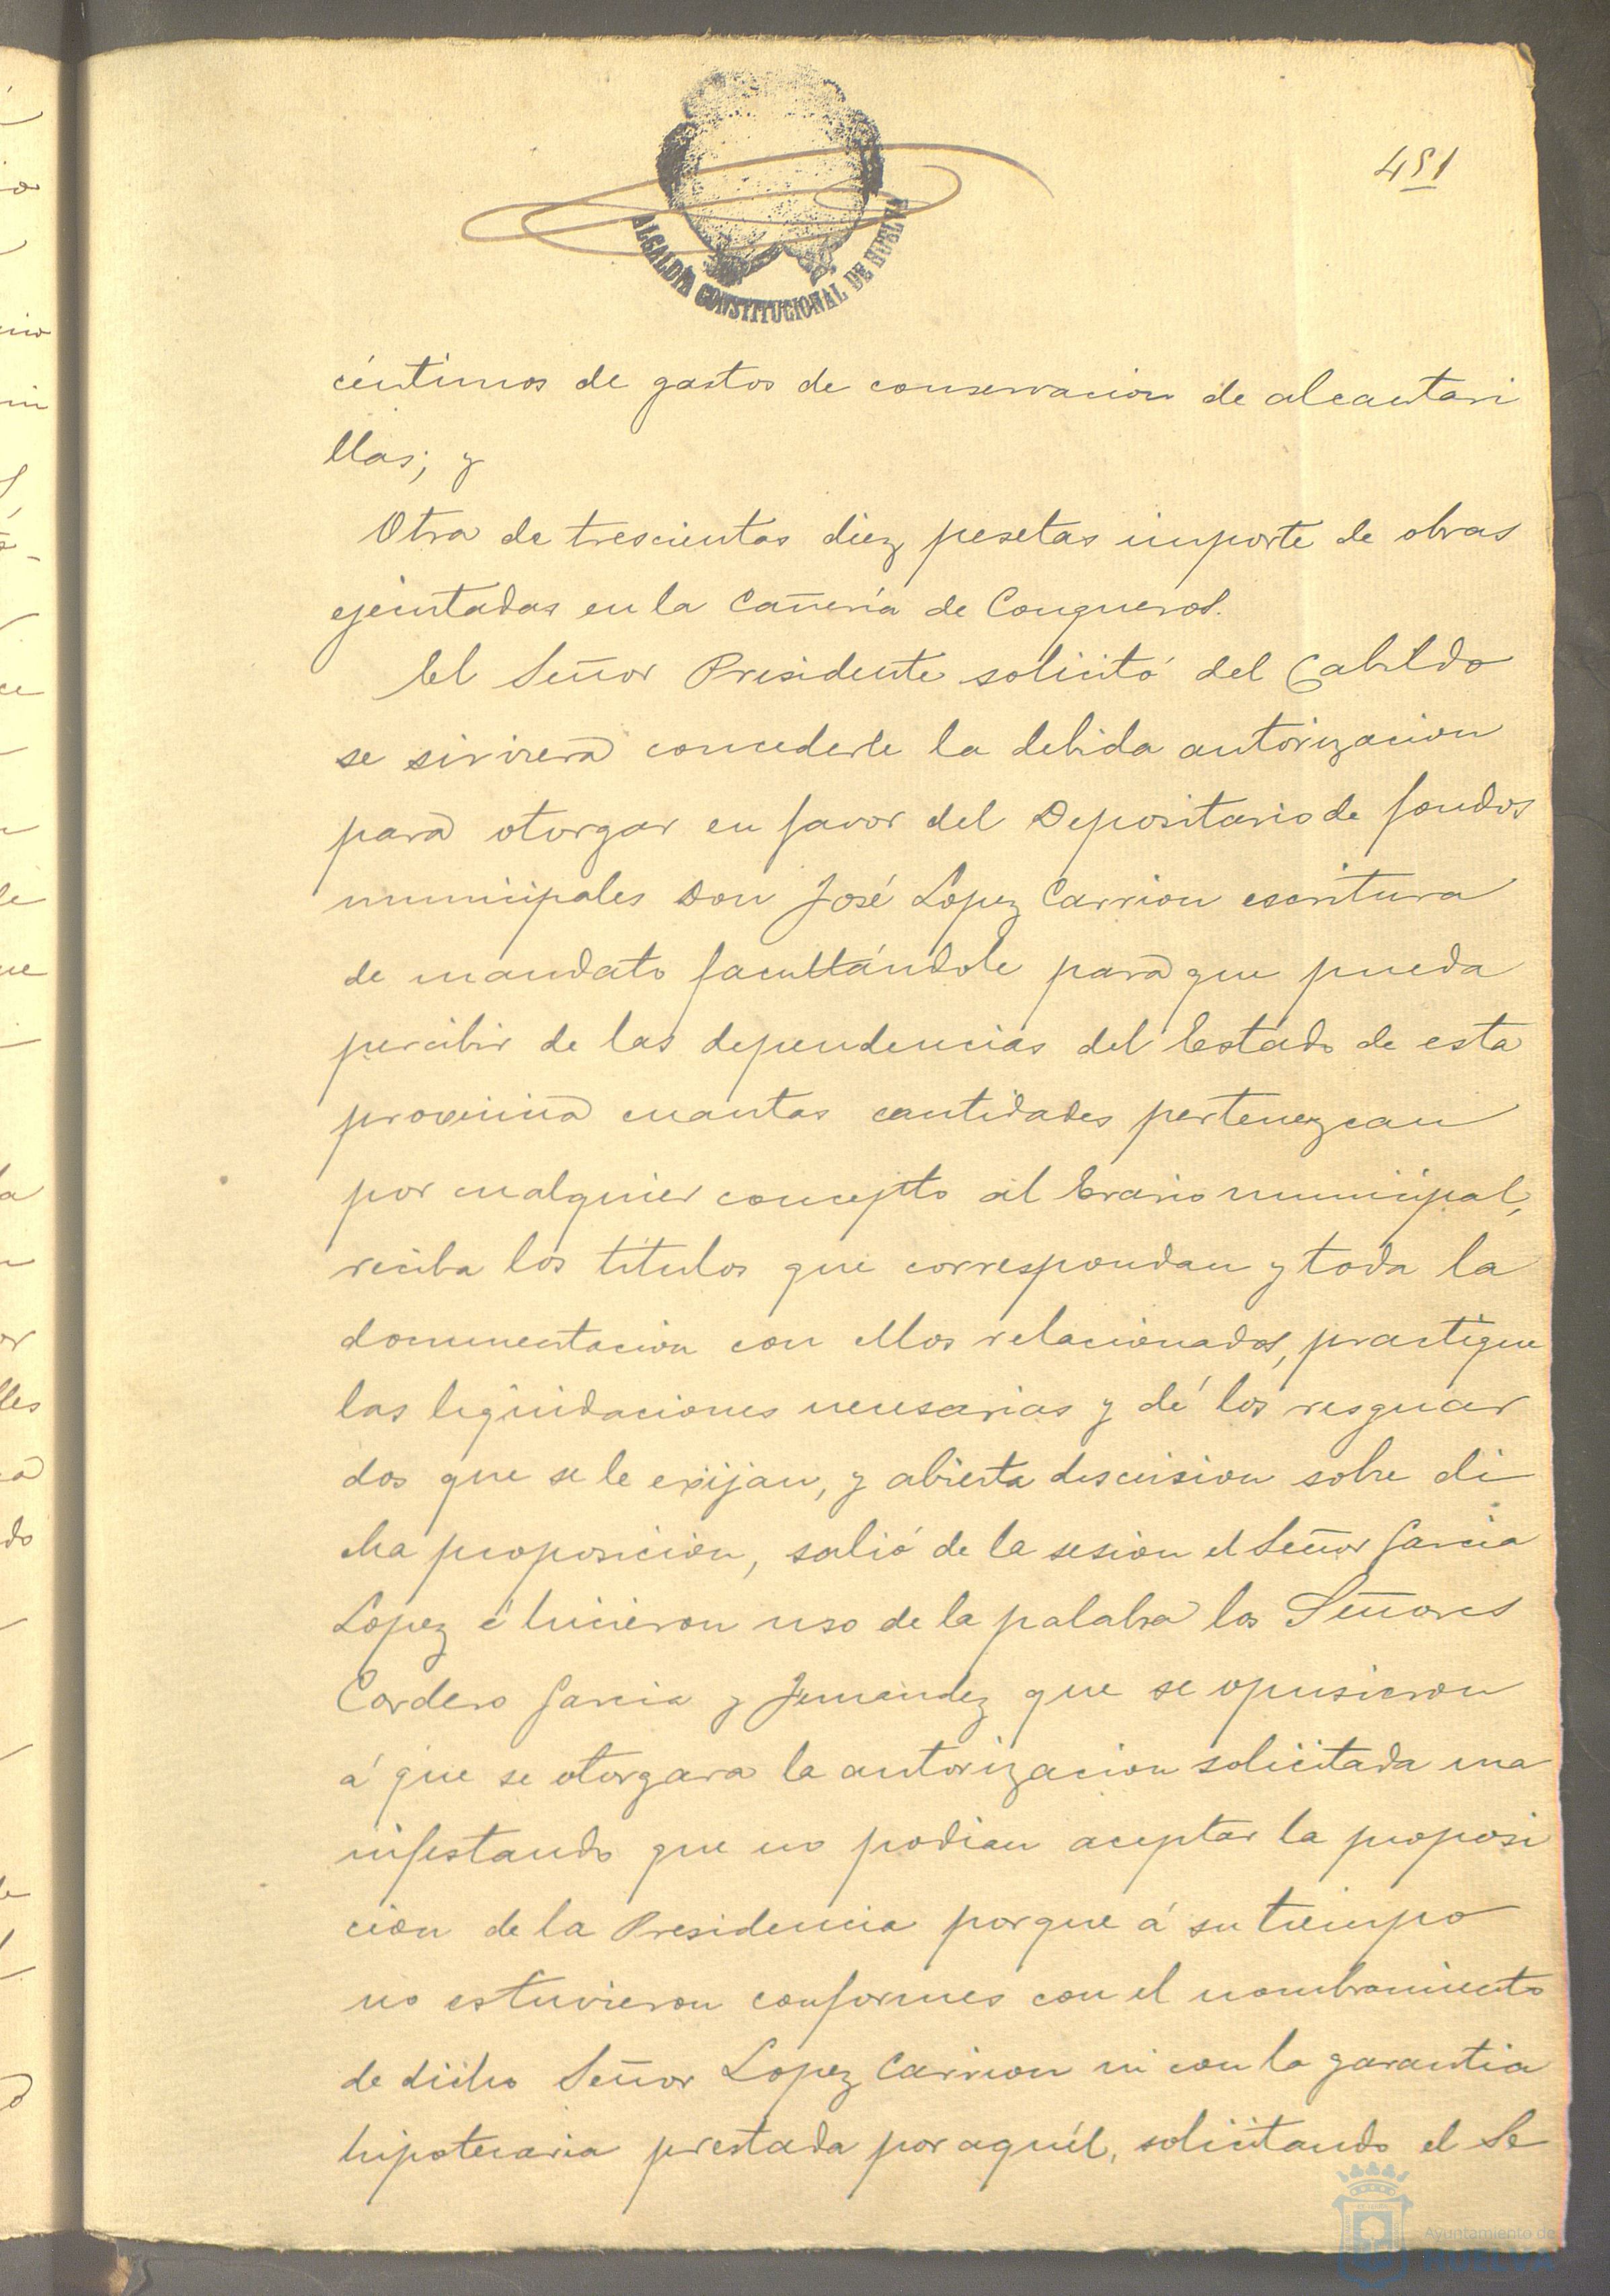 451
ALCALDÍA CONSTITUCIONAL DE HUELVA
céntimos de gastos de conservacion de alcantari
llas; y
Otra de trescientas diez pesetas importe de obras
ejecutadas en la Cañería de Conqueros.
El Señor Presidente solicitó del Cabildo
se sirviera concederle la debida autorizacion
para otorgar en favor del Depositario de fondos
municipales Don José Lopez Carrion escritura
de mandato facultándole para que pueda
percibir de las dependencias del Estado de esta
provincia cuantas cantidades pertenezcan
por cualquier concepto al Erario municipal,
reciba los títulos que correspondan y toda la
documentacion con ellos relacionados, practique
las liquidaciones necesarias y dé los resguar
dos que se le exijan, y abierta discusion sobre di
cha proposicion, salió de la sesion el Señor Garcia
Lopez é hicieron uso de la palabra los Señores
Cordero Garcia y Fernandez que se opusieron
á que se otorgara la autorizacion solicitada ma
nifestando que no podian aceptar la proposi
cion de la Presidencia porque á su tiempo
no estuvieron conformes con el nombramiento
de dicho Señor Lopez Carrion ni con la garantia
hipotecaria prestada por aquél, solicitando el Se
Ayuntamiento de
HUELVA